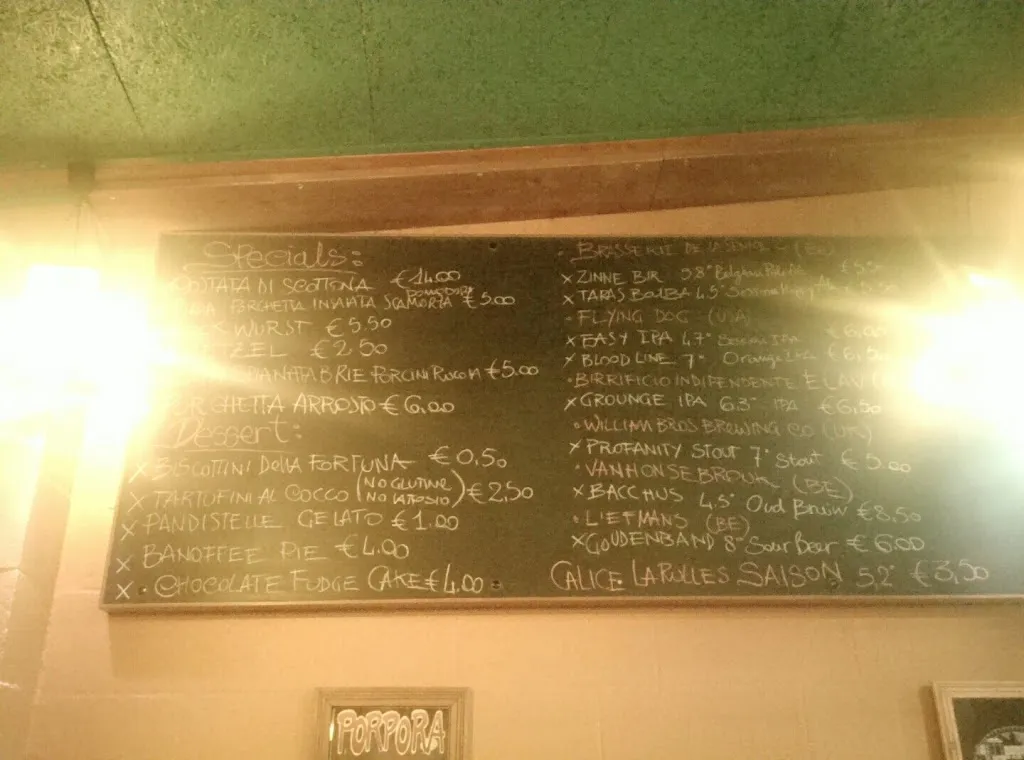 Specials:
DI SCOTTONA €14.00
POMODORI
PORCHETTA SCAMORZA €5.00
WURST €5.50
ZEL €2,50
BRIE PORCINI RUCOLA €5.00
ARROSTO €6,00
Dessert:
X BISCOTTINI DELLA FORTUNA €0,50
X TARTUFINI AL COCCO (NO GLUTINE
NO LATTOSIO) €2,50
X PANDISTELLE GELATO €1.00
X BANOFFEE PIE €4.00
X CHOCOLATE FUDGE CAKE €4,00
• BRASSERIE DE LA SENNE (BE)
X ZINNE BIR 5.8°
X TARAS BOULBA 4.5°
• FLYING DOG (USA)
X EASY IPA 4,7° Session IPA €6,00
X BLOODLINE 7° Orange IPA €6,50
• BIRRIFICIO INDIPENDENTE ELAV
X GROUNGE IPA 6.3° IPA €6,50
• WILLIAM BROS BREWING CO (UK)
X PROFANITY STOUT 7° Stout €5.00
• VANHONSEBROUK (BE)
X BACCHUS 4.5° Oud Bruin €8,50
• LIEFMANS (BE)
X GOUDENBAND 8° Sour Beer €6.00
CALICE LARULLES SAISON 5,2° €3,50
PORPORA